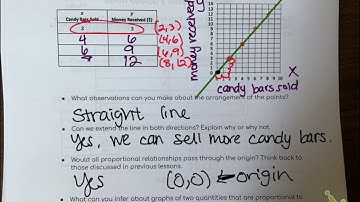 x
Candy Bars Sold
y
Money Received ($)
2 3 (2,3)
4 6 (4,6)
6 9 (6,9)
12 (8,12)
money received
14
13
12
11
10
9
8
7
6
5
4
3
2
1
0
0 1 2 3 4 5 6 7 8 9 10
X
candy bars sold
What observations can you make about the arrangement of the points?
Straight line
Can we extend the line in both directions? Explain why or why not.
Yes, we can sell more candy bars.
Would all proportional relationships pass through the origin? Think back to
those discussed in previous lessons.
Yes (0,0) origin
What can you infer about graphs of two quantities that are proportional to